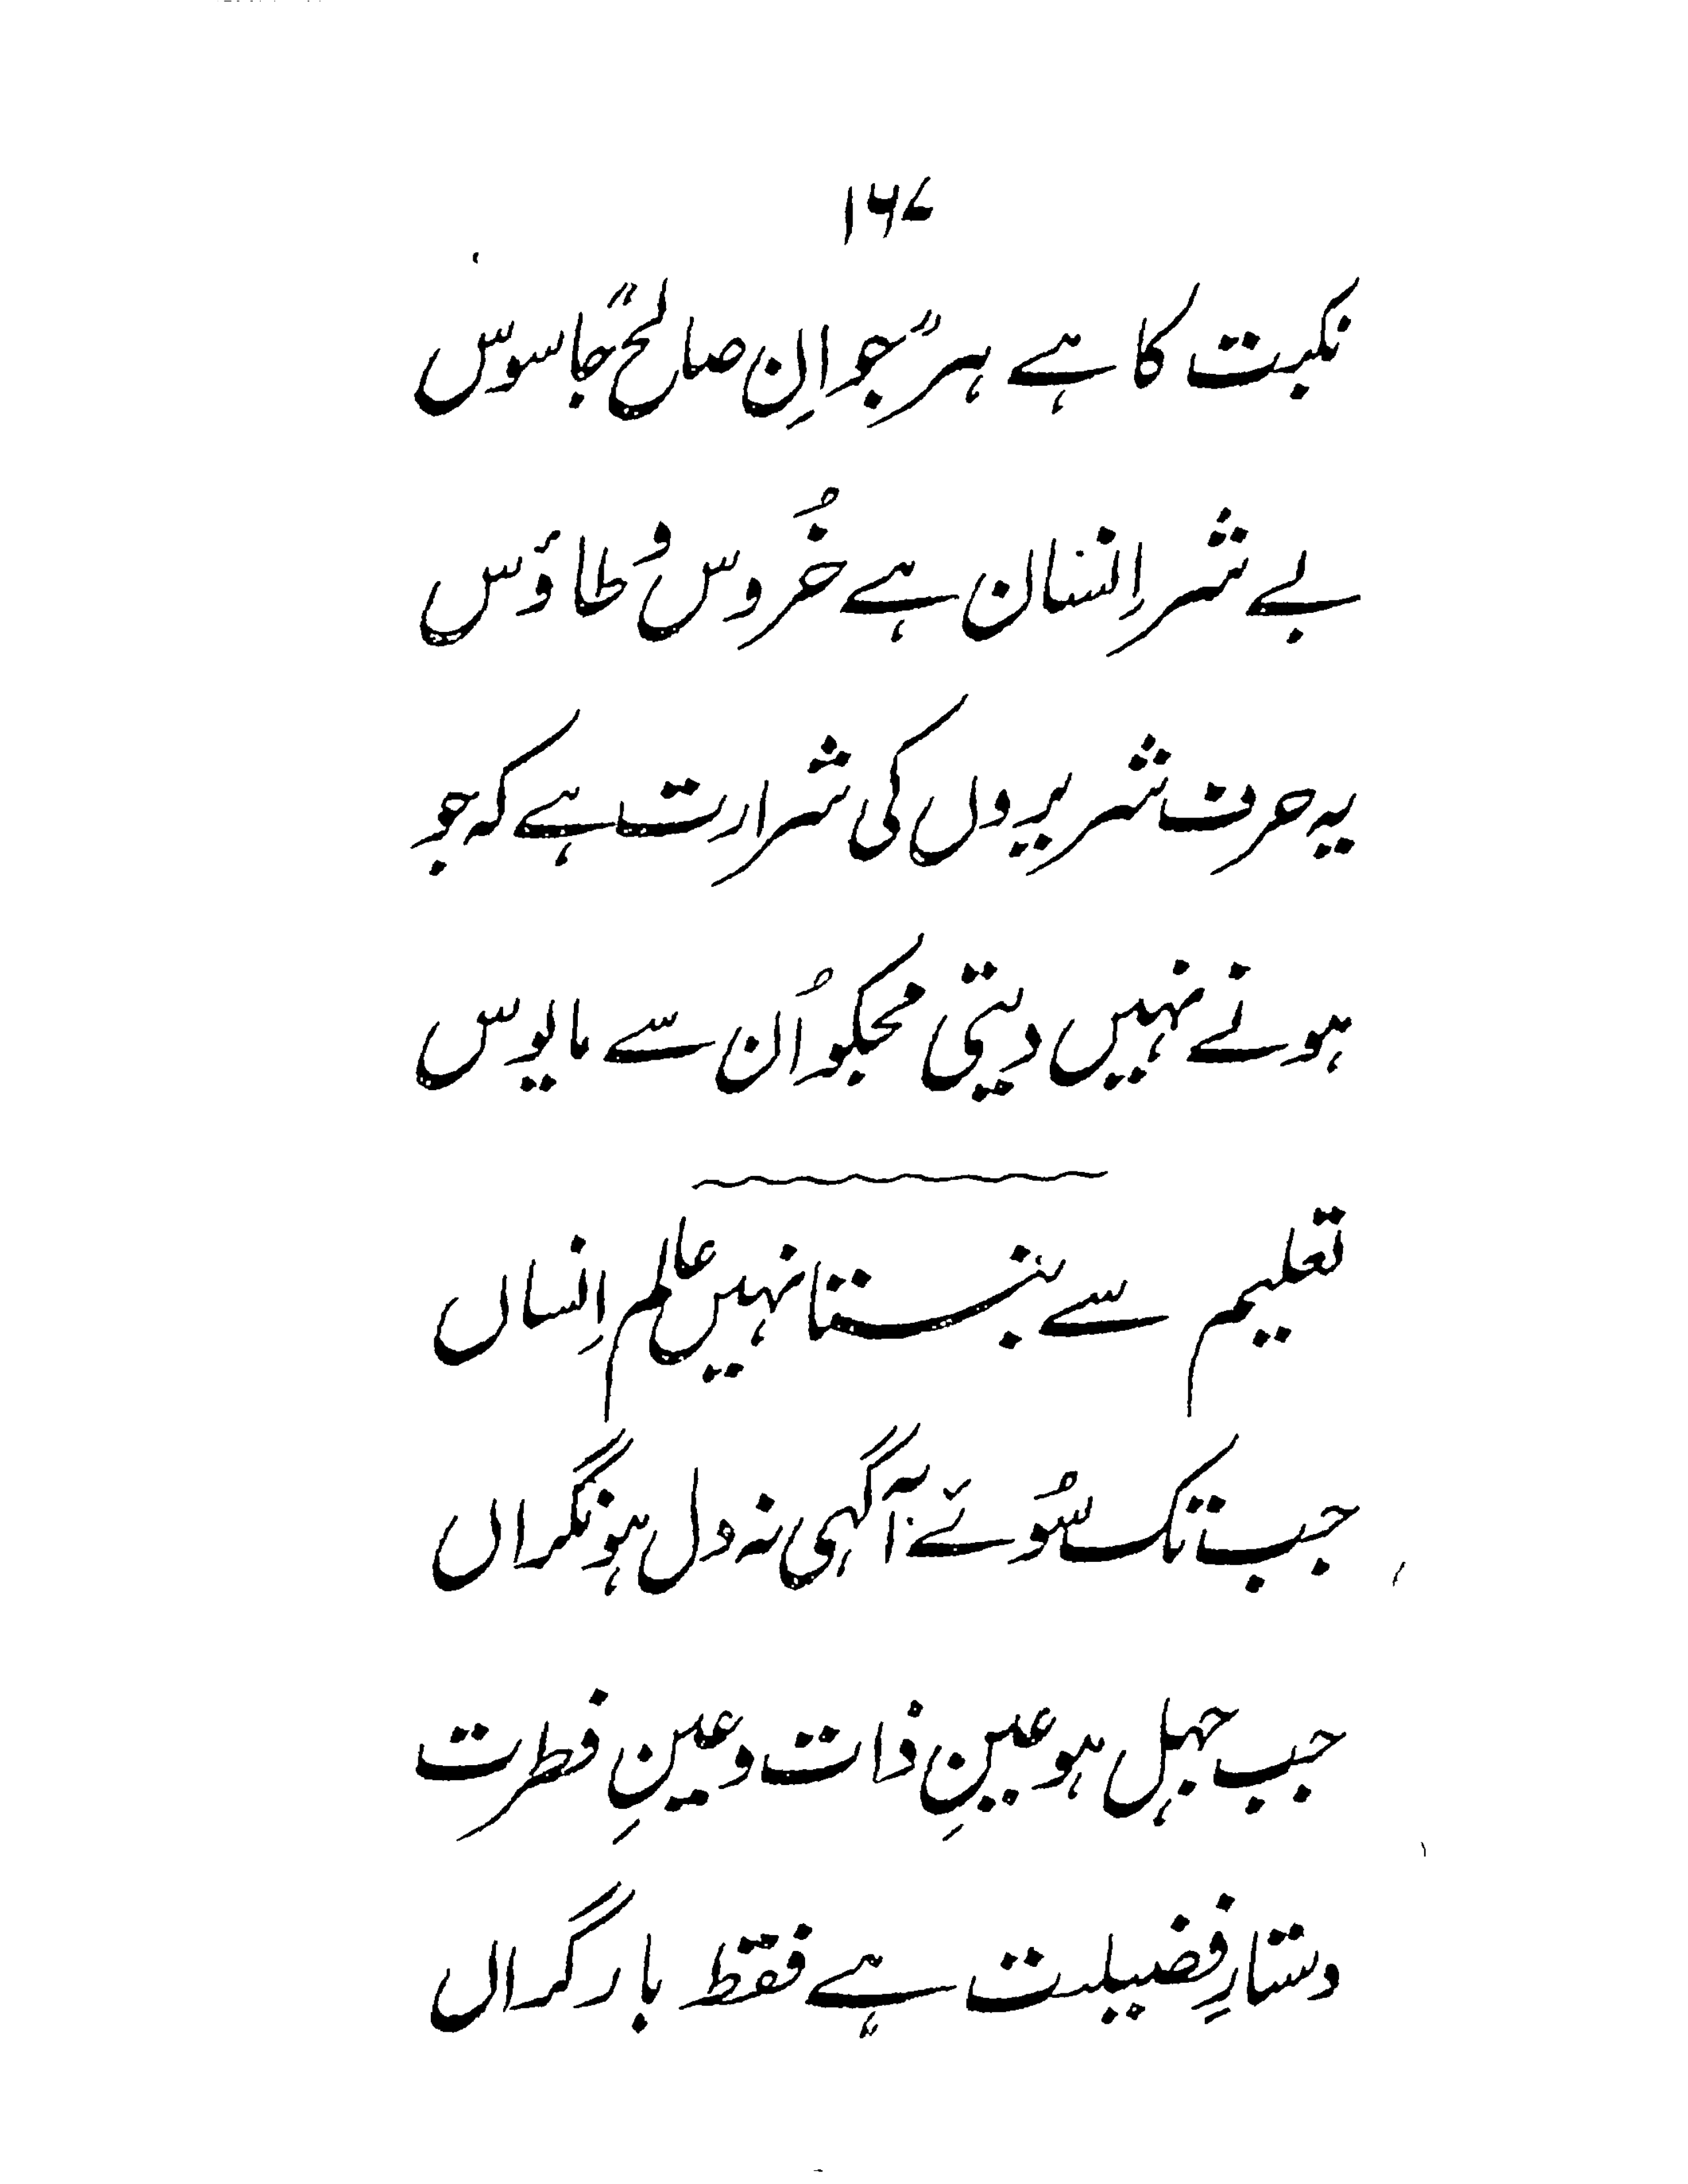 ۱۶۷
نکبت کا ہے ہر "جوانِ صالح" جاسوس
بے شر اِنسان ہے خُروس و طاؤس
یہ حرف شریروں کی شرارت ہے کہ جو
ہونے نہیں دیتی مجکو اُن سے مایوس
تعلیم سے بنتا نہیں عالم اِنساں
جب تک سُوئے آگہی نہ دل ہو نگراں
جب جہل ہو عینِ ذات و عینِ فطرت
دستارِ فضیلت ہے فقط بار گراں